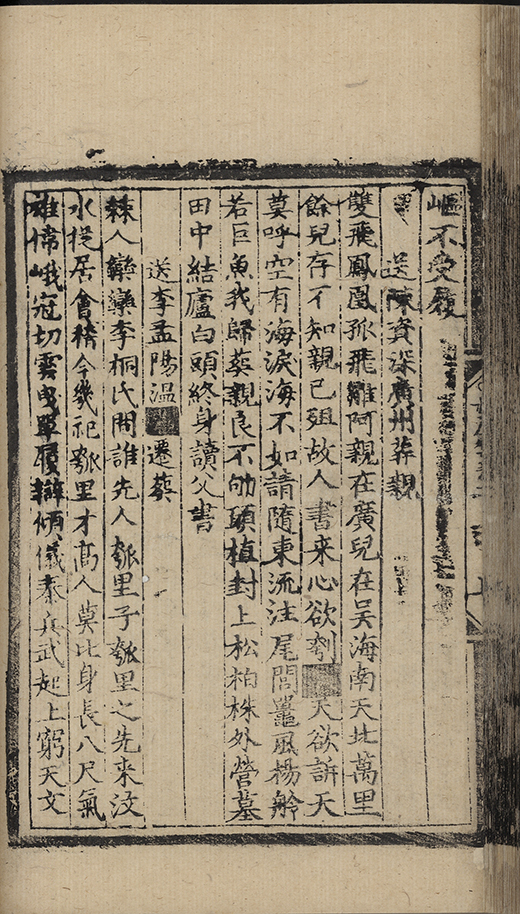 嶇不受覊
送陳資深廣州葬親
雙飛鳳凰孤飛雛阿親在廣兒在吳海南天北萬里
餘兒存不知親已殂故人書来心欲刳天欲訴天
莫呼空有海淚海不如請隨東流注尾閭風楊舲
若巨魚我歸葬親良不劬頭植封上松柏株外營墓
田中結廬白頭終身讀父書
送李孟陽温遷葬
棘人欒欒李桐氏問誰先人瓠里子瓠里之先来汶
水徙居會稽今幾祀瓠里才髙人莫比身長八尺氣
雄偉峨冠切雲曳單履辯傾儀秦兵武起上窮天文